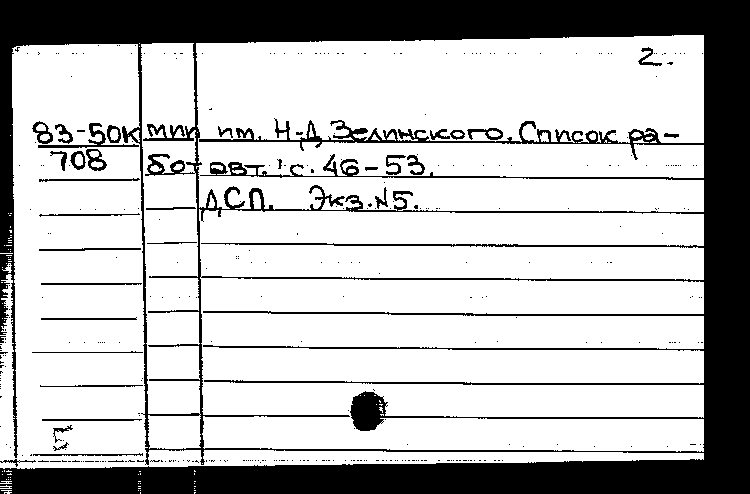 2.
83-50К мии им. Н.Д. Зелинского. Список ра-
708 бот авт.: с. 46-53.
ДСП. Экз. №5.
Б